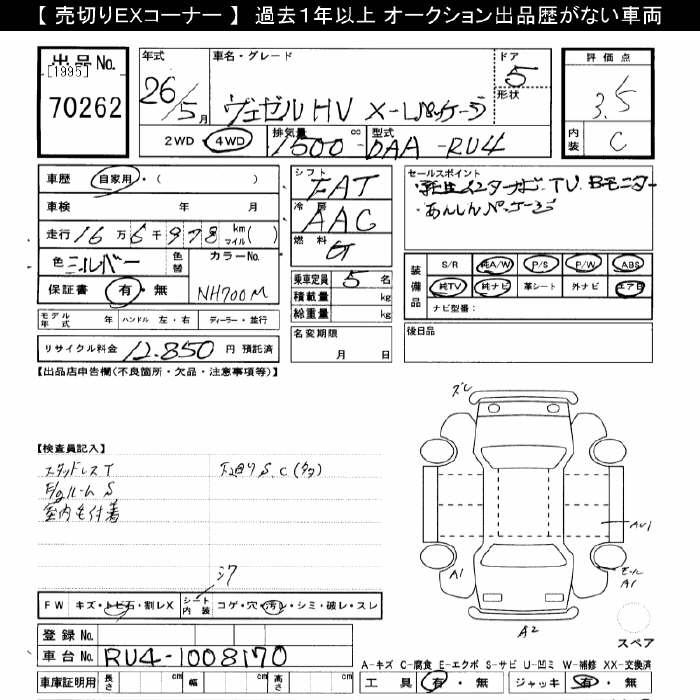 【 売切りEXコーナー 】 過去1年以上 オークション出品歴がない車両
出品No.
[1995]
70262
年式
26/5月
車名・グレード
ヴェゼルHV X-Lパッケージ
ドア
5
形状
評価点
3.5
内装
C
2WD ・ 4WD
排気量 1500 cc
型式 DAA-RU4
車歴 自家用・( )
車検 年 月
走行 16万 6千 978 km マイル ( )
色 シルバー 色替
カラーNo.
NH700M
保証書 有・無
モデル年式 年 ハンドル 左・右 ディーラー・並行
リサイクル料金 12.850 円 預託済
シフト FAT
冷房 AAC
燃料 G
乗車定員 5 名
積載量 kg
総重量 kg
名変期限
月 日
セールスポイント
・純正インターナビ TV Bモニター
・あんしんパッケージ
装備品
S/R 純A/W P/S P/W ABS
純TV 純ナビ 革シート 外ナビ エアB
ナビ型番:
後日品
【出品店申告欄(不良箇所・欠品・注意事項等)】
【検査員記入】
スタッドレスT
F/gルームS
室内毛付着
下廻りS.C(多)
シワ
FW キズ・トビ石・割レX
シート内装 コゲ・穴・汚レ・シミ・破レ・スレ
登録No.
車台No. RU4-1008170
車庫証明用 長さ cm 幅 cm 高さ cm
ズレ
AU1
A1
モール
A1
A2
スペア
A-キズ C-腐食 E-エクボ S-サビ U-凹ミ W-補修 XX-交換済
工具 有・無 ジャッキ 有・無